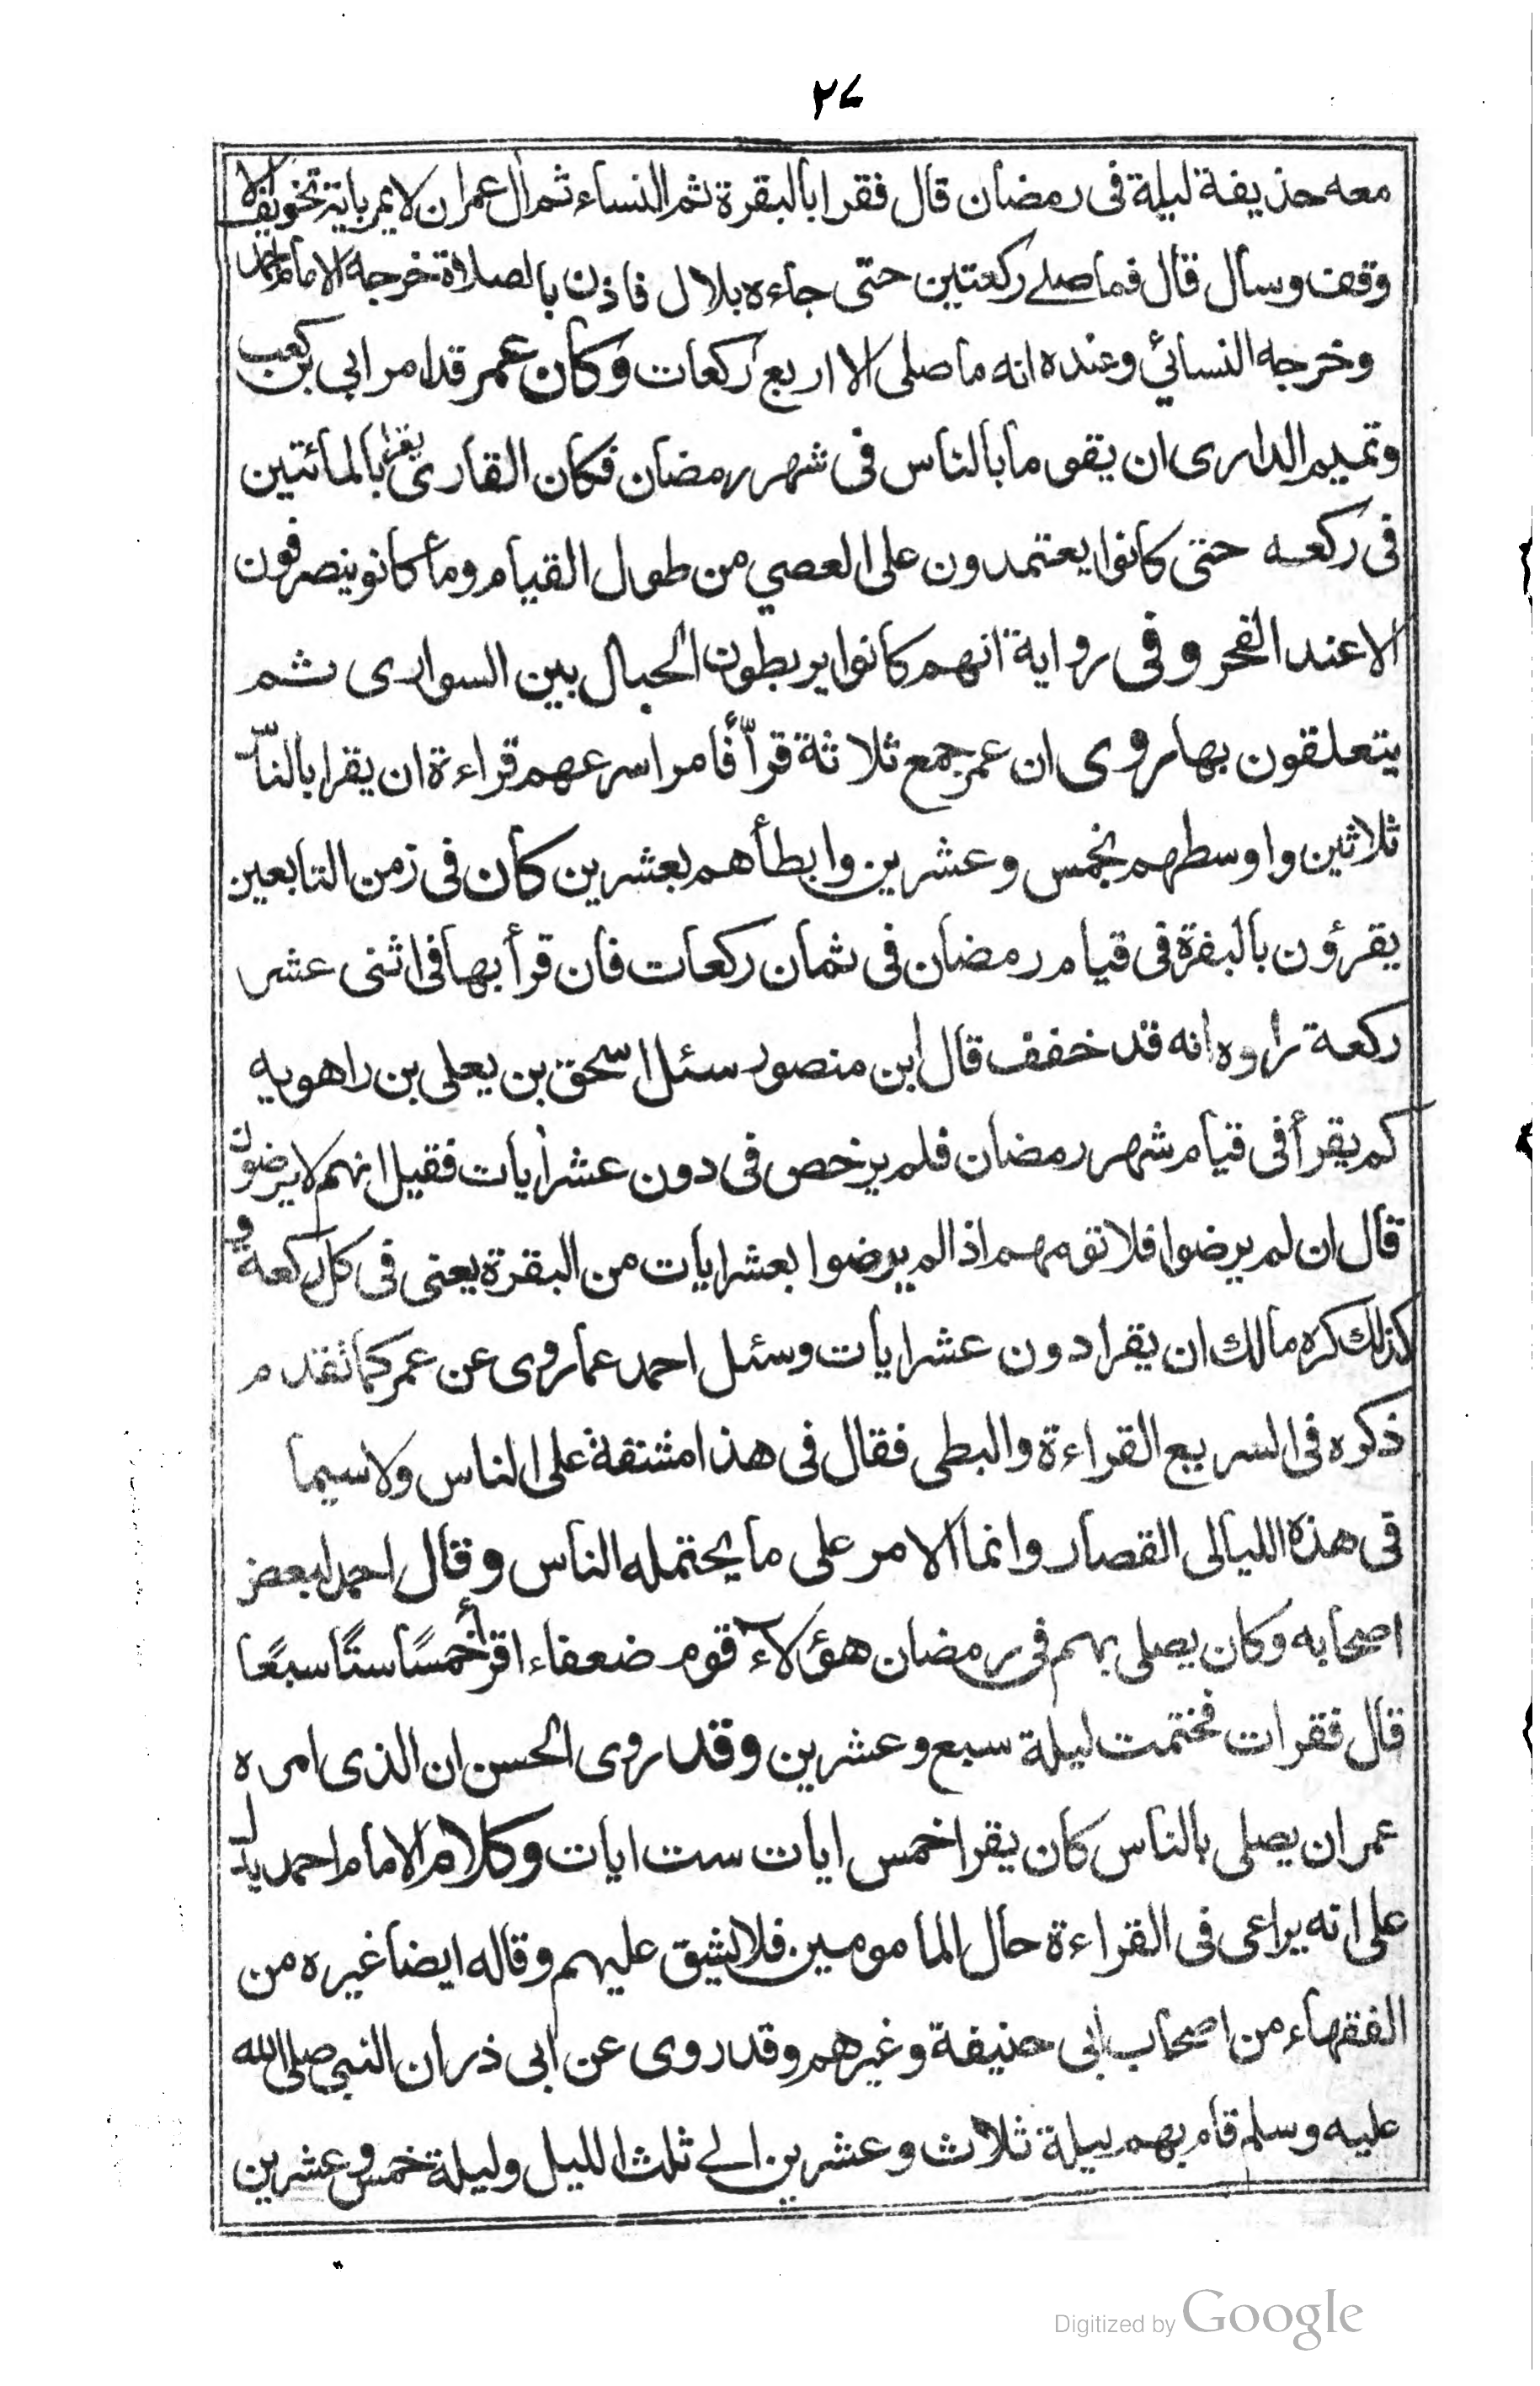 ٢٧
معه حذيفة ليلة فى رمضان قال فقرا بالبقرة ثم النساء ثم ال عمران لا يمر باية تخويف الا
وقف وسال قال فما صلے ركعتين حتى جاءه بلال فاذن بالصلاة خرجه الامام احمد
وخرجه النسائي وعنده انه ما صلى الا اربع ركعات وكان عمر قد امر ابي بن كعب
وتميم الدارى ان يقوما بالناس فى شهر رمضان فكان القارى يقرا بالمائتين
فى ركعه حتى كانوا يعتمدون على العصي من طول القيام وما كانو ينصرفون
الا عند الفجر وفى رواية انهم كانوا يربطون الحبال بين السوارى ثم
يتعلقون بها وروى ان عمر جمع ثلاثة قرأ فأمر اسرعهم قراءة ان يقرا بالناس
ثلاثين واوسطهم بخمس وعشرين وابطأهم بعشرين كان فى زمن التابعين
يقرؤن بالبقرة فى قيام رمضان فى ثمان ركعات فان قرأ بها فى اثنى عشر
ركعة راوه انه قد خفف قال ابن منصور سئل اسحق بن يعلى بن راهويه
كم يقرأ فى قيام شهر رمضان فلم يرخص فى دون عشر أيات فقيل انهم لا يرضون
قال ان لم يرضوا فلا تؤمهم اذا لم يرضوا بعشر ايات من البقرة يعنى فى كل ركعة و
كذلك كره مالك ان يقرا دون عشر ايات وسئل احمد عما روى عن عمر كما تقدم
ذكره فى السريع القراءة والبطى فقال فى هذا مشقة على الناس ولا سيما
فى هذه الليالى القصار وانما الامر على ما يحتمله الناس وقال احمد لبعض
اصحابه وكان يصلى بهم فى رمضان هؤلاء قوم ضعفاء اقرأ خمسًا ستًا سبعًا
قال فقرات فختمت ليلة سبع وعشرين وقد روى الحسن ان الذى امره
عمر ان يصلى بالناس كان يقرا خمس ايات ست ايات وكلام الامام احمد يدل
على انه يراعى فى القراءة حال المامومين فلا يشق عليهم وقاله ايضا غيره من
الفقهاء من اصحاب ابى حنيفة وغيرهم وقد روى عن ابى ذر ان النبي صلى الله
عليه وسلم قام بهم ليلة ثلاث وعشرين الے ثلث الليل وليلة خمس وعشرين
Digitized by Google